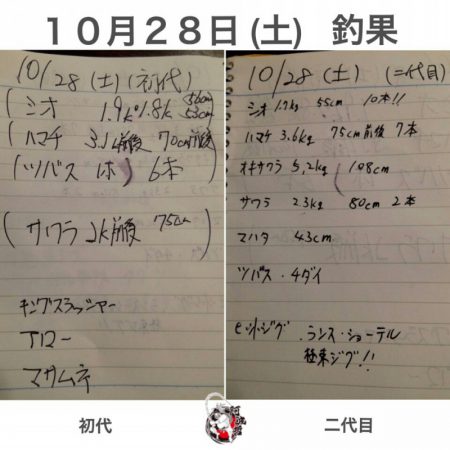 １０月２８日(土) 釣果
10/28 (土) (初代)
(シオ 1.9k 1.8k 56cm 53cm
(ハマチ 3.1k前後 70cm前後
(ツバス 1本) 6本
(サワラ 2k前後 75cm
キングスラッシャー
アロー
マサムネ
10/28 (土) (二代目)
シオ 1.7kg 55cm 10本!!
ハマチ 3.6kg 75cm前後 7本
オキサワラ 5.2kg ( 108cm
サワラ 2.3kg 80cm 2本
マハタ 43cm
ツバス・4ダイ
ヒットジグ ランス・ショーテル
極東ジグ!!
初代
二代目